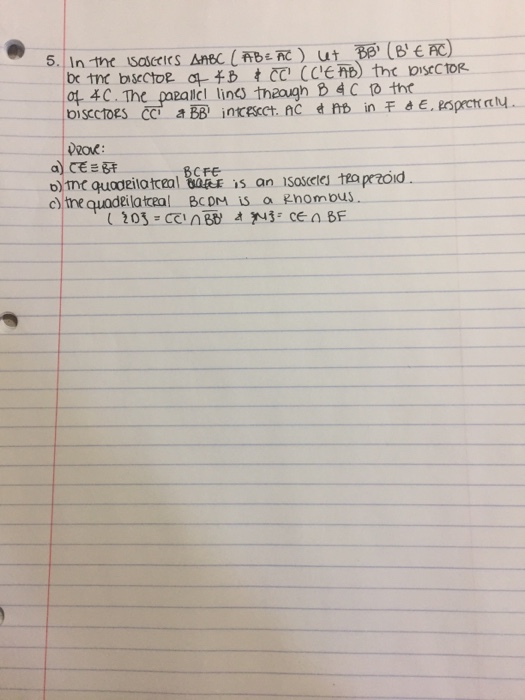 5. In the isosceles ΔABC (AB ≡ AC) let BB' (B' ∈ AC)
be the bisector of ∡B & CC' (C' ∈ AB) the bisector
of ∡C. The parallel lines through B & C to the
bisectors CC' & BB' intersect. AC & AB in F & E, respectively.
Prove:
a) CE ≡ BF
b) the quadrilateral BCFE is an isosceles trapezoid.
c) the quadrilateral BCDM is a rhombus.
( {D} = CC' ∩ BB' & {M} = CE ∩ BF